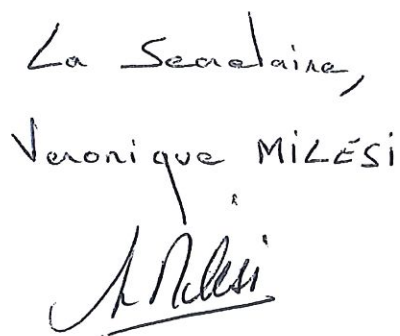 La Secretaire,
Veronique MILESI
Milesi